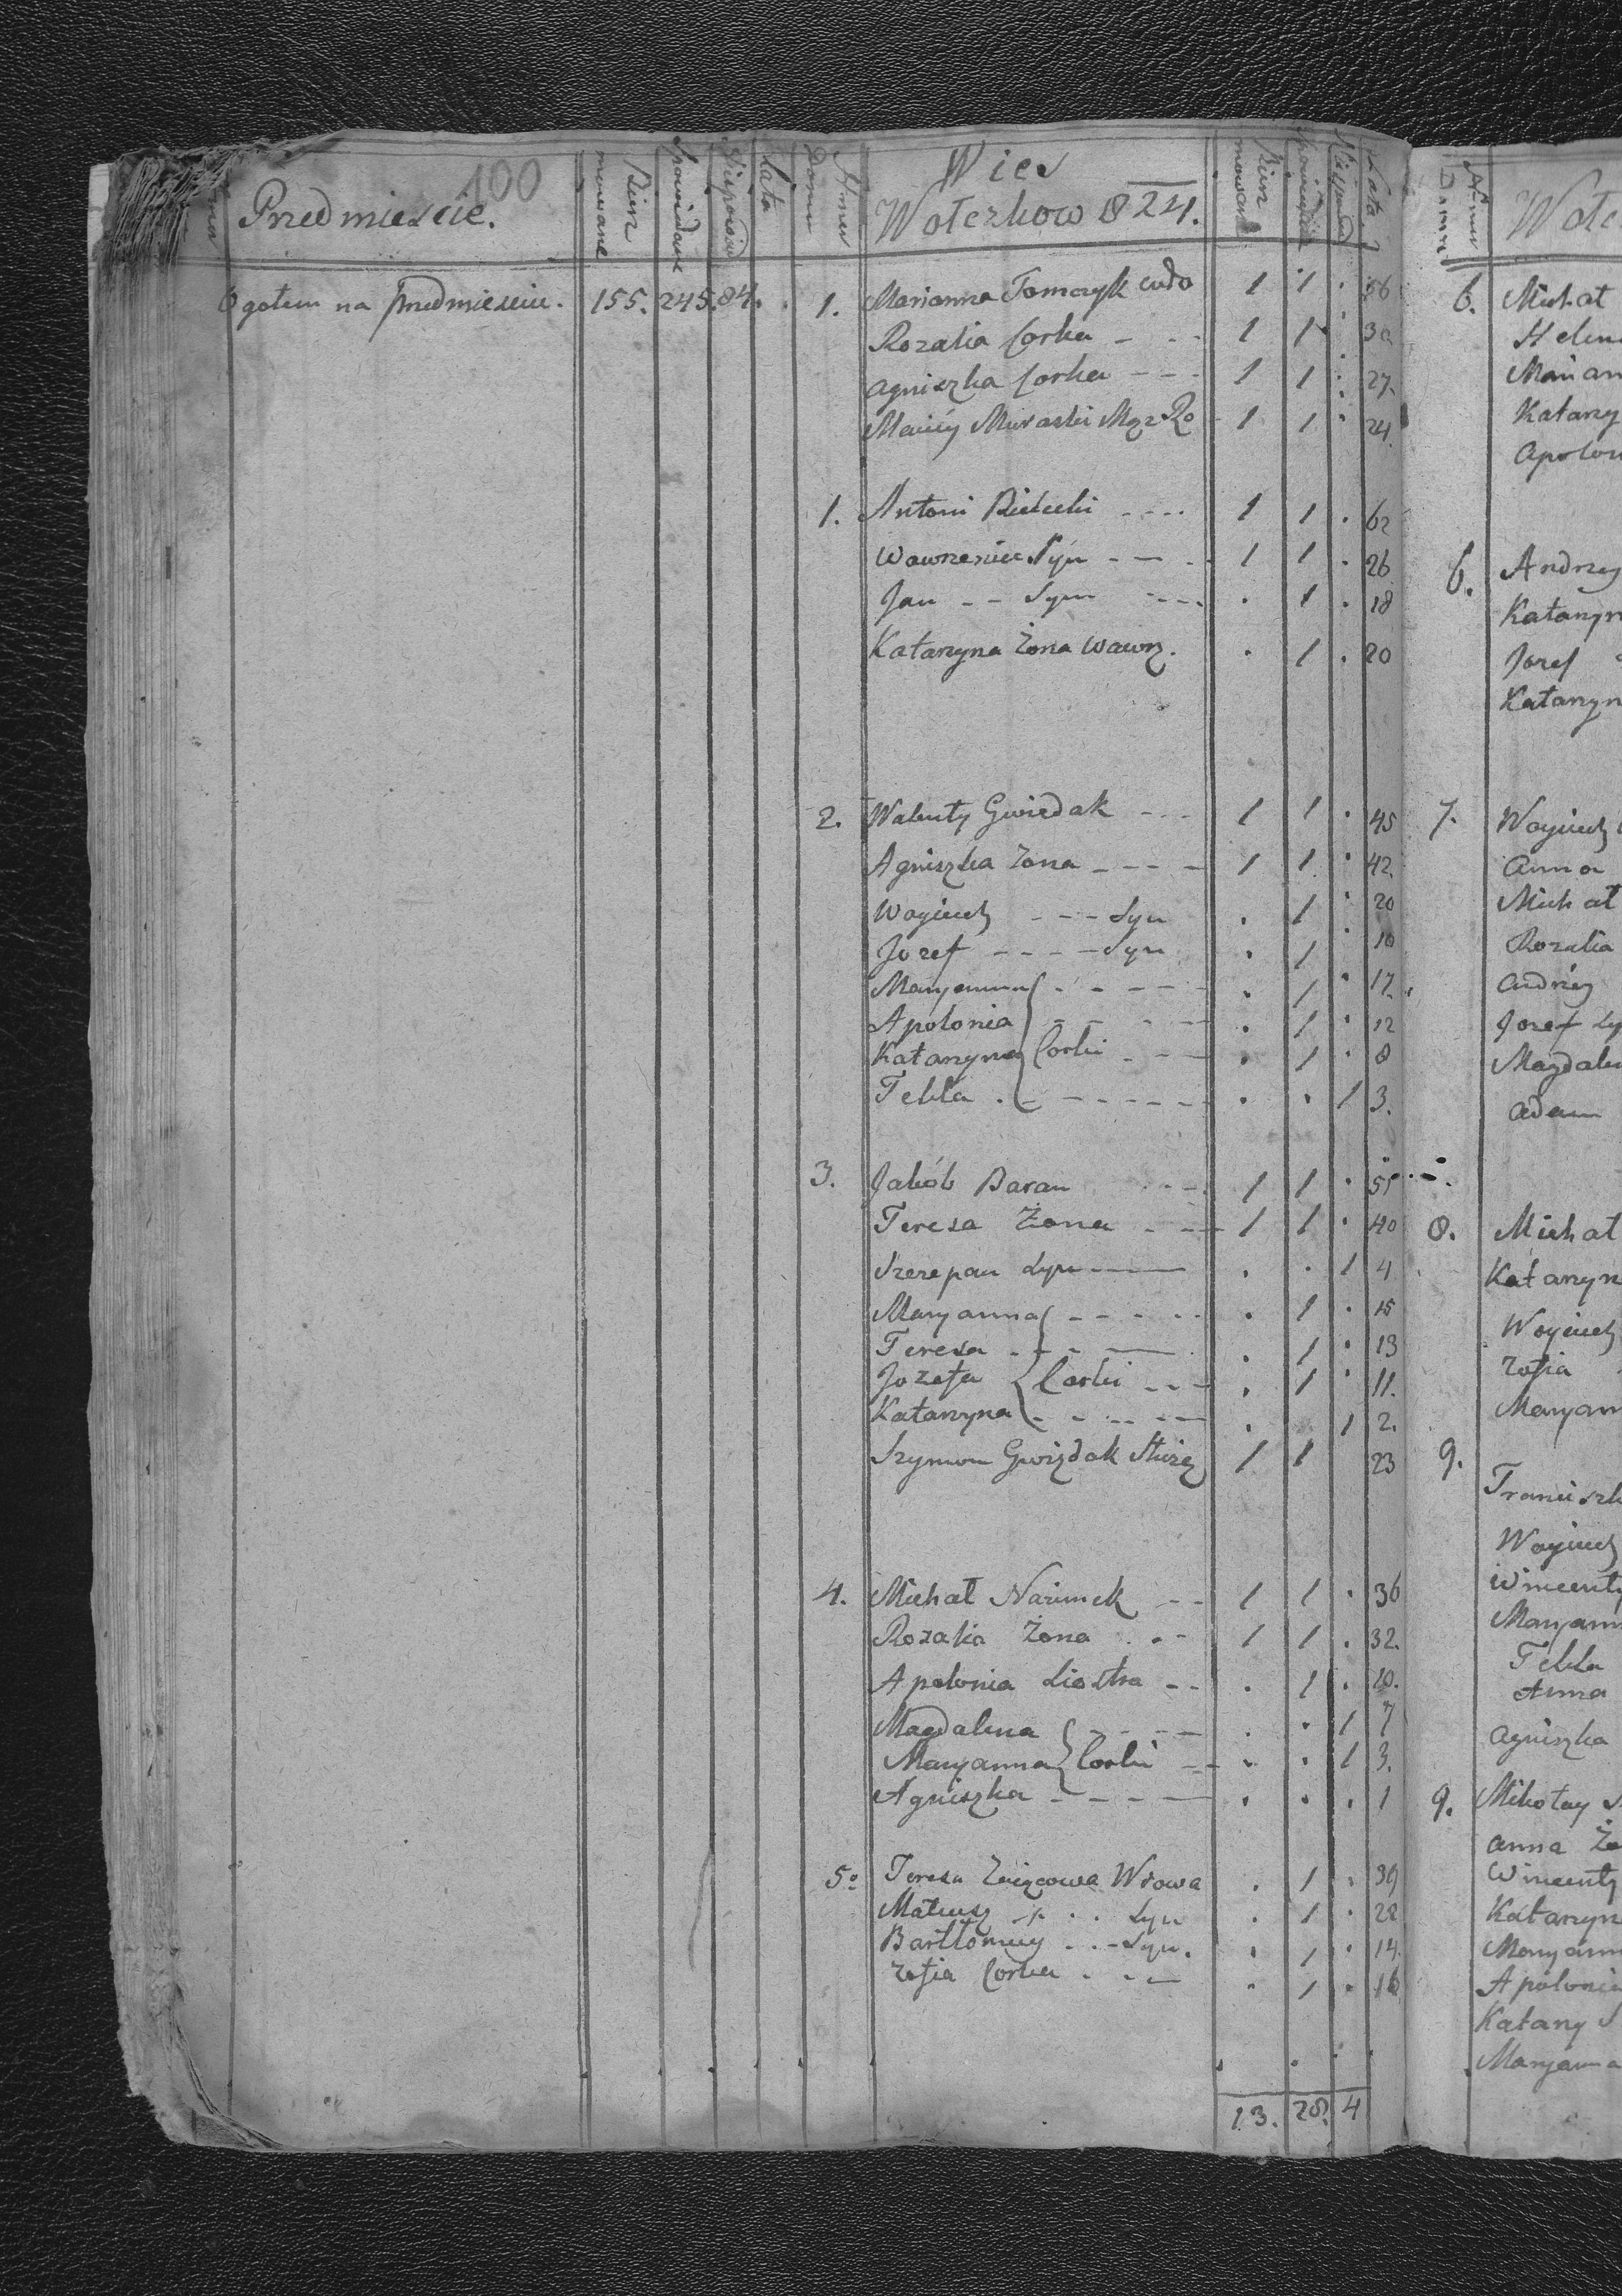 100
Przedmiescie.
Bierz
mowane
Spowiedane
Lata
Ogołem na przedmiesciu. 155. 245. 84.
Numer
Domu
Wies
Woleszkow 1824.
Bierz
mowane
Lata
1. Marianna Tomczyk wdo 1 1 . 56
Rozalia Corka - - - 1 1 . 30
Agniszka Corka - - - 1 1 . 27.
Maciey Muraski Mąz Ro 1 1 . 24.
1. Antoni Bielecki - - - - 1 1 . 62
Wawrzeniec Syn - - - 1 1 . 26
Jan - - Syn - - - . 1 . 18
Katarzyna Żona Wawrz. . 1 . 20
2. Walenty Gwizdak - - - 1 1 . 45
Agniszka Zona - - - - 1 1 . 42.
Woyciech - - - Syn . 1 . 20
Jozef - - - - Syn . 1 . 10
Maryanna - - - - . 1 . 17.
Apolonia - - - - . 1 . 12
Katarzyna Corki - - - . 1 . 8
Tekla . - - - - - - . . 1 3.
3. Jakób Baran - - - 1 1 . 55
Teresa Żona - - - 1 1 . 40
Szczepan Syn - . . 1 4
Maryanna - - - - . 1 . 15
Teresa - - - . 1 . 13
Jozefa Corki - - - . 1 . 11.
Katarzyna - - - - - . 1 2.
Szymon Gwizdak Służą 1 1 23
4. Michał Nazimek - - 1 1 . 36
Rozalia Żona . - - 1 1 . 32.
Apolonia Siostra - - . 1 . 20.
Magdalena - - - - . . 1 7
Maryanna Corki - - . . 1 3.
Agniszka - - - - . . . 1
5. Teresa Wdowa . 1 . 39
Mateusz - . . Syn . 1 . 22
Bartłomiey . . - Syn. . 1 . 14.
Zofia Corka . - - . 1 . 16
13. 28. 4
Numer
Domu
Wole
6. Michał
Helen
Marian
Katarzy
Apolon
6. Andrzey
Katarzyn
Jozef
Katarzyn
7. Woyciech
Anna
Michał
Rozalia
Andrzey
Jozef Sy
Magdalen
Adam
8. Michał
Katarzyn
Woyciech
Zofia
Maryann
9. Franciszk
Woyciech
Wincenty
Maryann
Tekla
Anna
Agniszka
9. Mikołay
Anna Żo
Wincenty
Katarzyn
Maryann
Apolonia
Katarzy
Maryanna